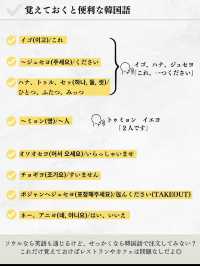 覚えておくと便利な韓国語
イゴ(이고)/これ
〜ジュセヨ(주세요)/ください
ハナ、トゥル、セッ(하나, 둘, 셋)/
ひとつ、ふたつ、みっつ
イゴ、ハナ、ジュセヨ
「これ、一つください」
〜ミョン(명)/〜人
トゥミョン イエヨ
「2人です」
オソオセヨ(어서 오세요)/いらっしゃいませ
チョギヨ(저기요)/すいません
ポジャンヘジュセヨ(포장해주세요)/包んください(TAKEOUT)
ネー、アニヨ(네, 아니요)/はい、いいえ
ソウルなら英語も通じるけど、せっかくなら韓国語で注文してみない?
これだけ覚えておけばレストランやカフェは問題なしだよ◎